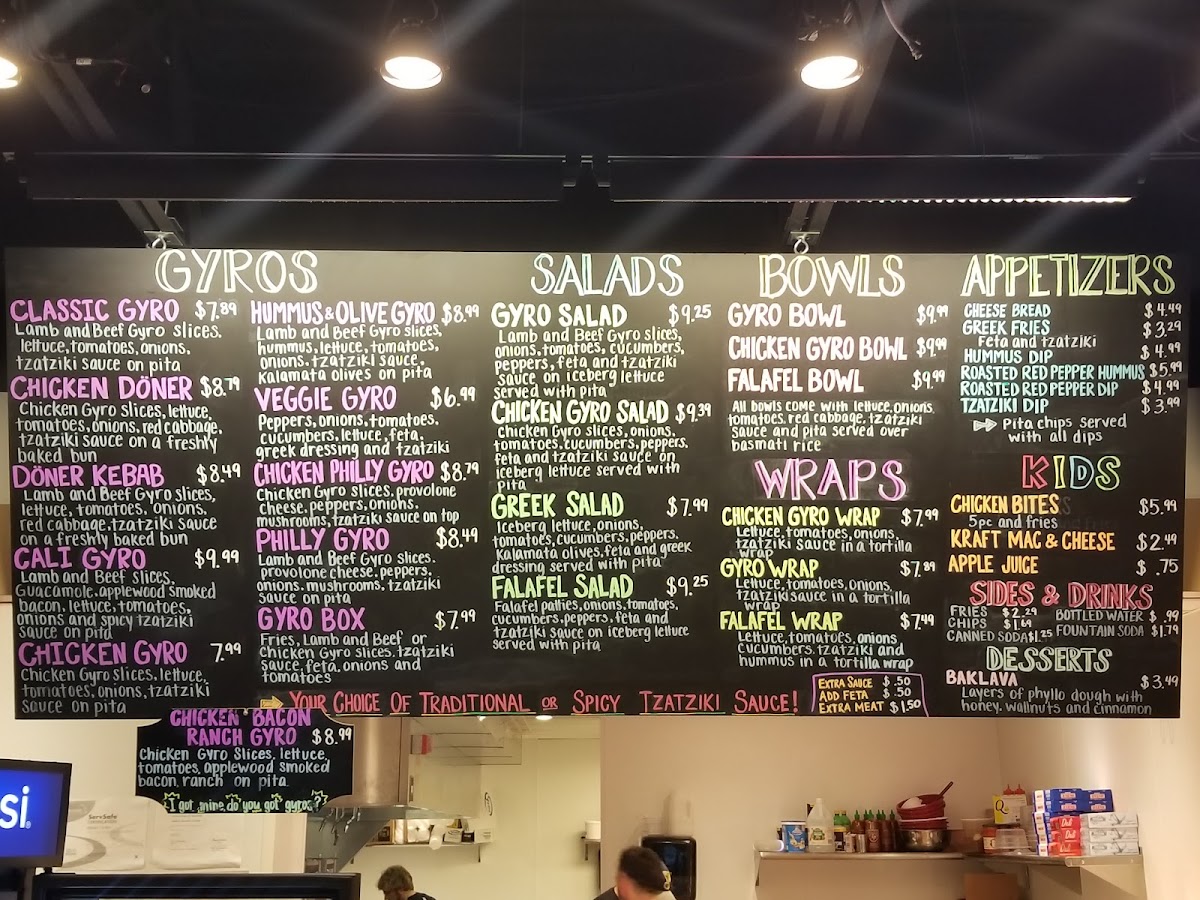 GYROS
CLASSIC GYRO $7.89
Lamb and Beef Gyro slices,
lettuce, tomatoes, onions,
tzatziki sauce on pita
CHICKEN DÖNER $8.79
Chicken Gyro slices, lettuce,
tomatoes, onions, red cabbage,
tzatziki sauce on a freshly
baked bun
DÖNER KEBAB $8.49
Lamb and Beef Gyro slices,
lettuce, tomatoes, onions,
red cabbage, tzatziki sauce
on a freshly baked bun
CALI GYRO $9.99
Lamb and Beef slices,
Guacamole, applewood smoked
bacon, lettuce, tomatoes,
onions and spicy tzatziki
sauce on pita
CHICKEN GYRO 7.99
Chicken Gyro slices, lettuce,
tomatoes, onions, tzatziki
sauce on pita
HUMMUS & OLIVE GYRO $8.99
Lamb and Beef Gyro slices,
hummus, lettuce, tomatoes,
onions, tzatziki sauce,
Kalamata olives on pita
VEGGIE GYRO $6.99
Peppers, onions, tomatoes,
cucumbers, lettuce, feta,
greek dressing and tzatziki
CHICKEN PHILLY GYRO $8.79
Chicken Gyro slices, provolone
cheese, peppers, onions,
mushrooms, tzatziki sauce on top
PHILLY GYRO $8.49
Lamb and Beef Gyro slices,
provolone cheese, peppers,
onions, mushrooms, tzatziki
sauce on pita
GYRO BOX $7.99
Fries, Lamb and Beef or
Chicken Gyro slices, tzatziki
sauce, feta, onions and
tomatoes
SALADS
GYRO SALAD $9.25
Lamb and Beef Gyro slices,
onions, tomatoes, cucumbers,
peppers, feta and tzatziki
sauce on iceberg lettuce
served with pita
CHICKEN GYRO SALAD $9.39
Chicken Gyro slices, onions,
tomatoes, cucumbers, peppers,
feta and tzatziki sauce on
iceberg lettuce served with
pita
GREEK SALAD $7.99
Iceberg lettuce, onions,
tomatoes, cucumbers, peppers,
Kalamata olives, feta and greek
dressing served with pita
FALAFEL SALAD $9.25
Falafel patties, onions, tomatoes,
cucumbers, peppers, feta and
tzatziki sauce on iceberg lettuce
served with pita
BOWLS
GYRO BOWL $9.99
CHICKEN GYRO BOWL $9.99
FALAFEL BOWL $9.99
All bowls come with lettuce, onions,
tomatoes, red cabbage, tzatziki
sauce and pita served over
basmati rice
WRAPS
CHICKEN GYRO WRAP $7.99
Lettuce, tomatoes, onions,
tzatziki sauce in a tortilla
wrap
GYRO WRAP $7.89
Lettuce, tomatoes, onions,
tzatziki sauce in a tortilla
wrap
FALAFEL WRAP $7.49
Lettuce, tomatoes, onions,
cucumbers, tzatziki and
hummus in a tortilla wrap
EXTRA SAUCE $.50
ADD FETA $.50
EXTRA MEAT $1.50
APPETIZERS
CHEESE BREAD $4.49
GREEK FRIES $3.29
Feta and tzatziki
HUMMUS DIP $4.99
ROASTED RED PEPPER HUMMUS $5.99
ROASTED RED PEPPER DIP $4.99
TZATZIKI DIP $3.99
Pita chips served
with all dips
KIDS
CHICKEN BITES $5.99
5pc and fries
KRAFT MAC & CHEESE $2.49
APPLE JUICE $.75
SIDES & DRINKS
FRIES $2.29
CHIPS $1.69
CANNED SODA $1.25
BOTTLED WATER $.99
FOUNTAIN SODA $1.79
DESSERTS
BAKLAVA $3.49
Layers of phyllo dough with
honey, wallnuts and cinnamon
YOUR CHOICE OF TRADITIONAL OR SPICY TZATZIKI SAUCE!
CHICKEN BACON
RANCH GYRO $8.99
Chicken Gyro Slices, lettuce,
tomatoes, applewood smoked
bacon, ranch on pita
I got mine do you got gyros?
si
ServSafe